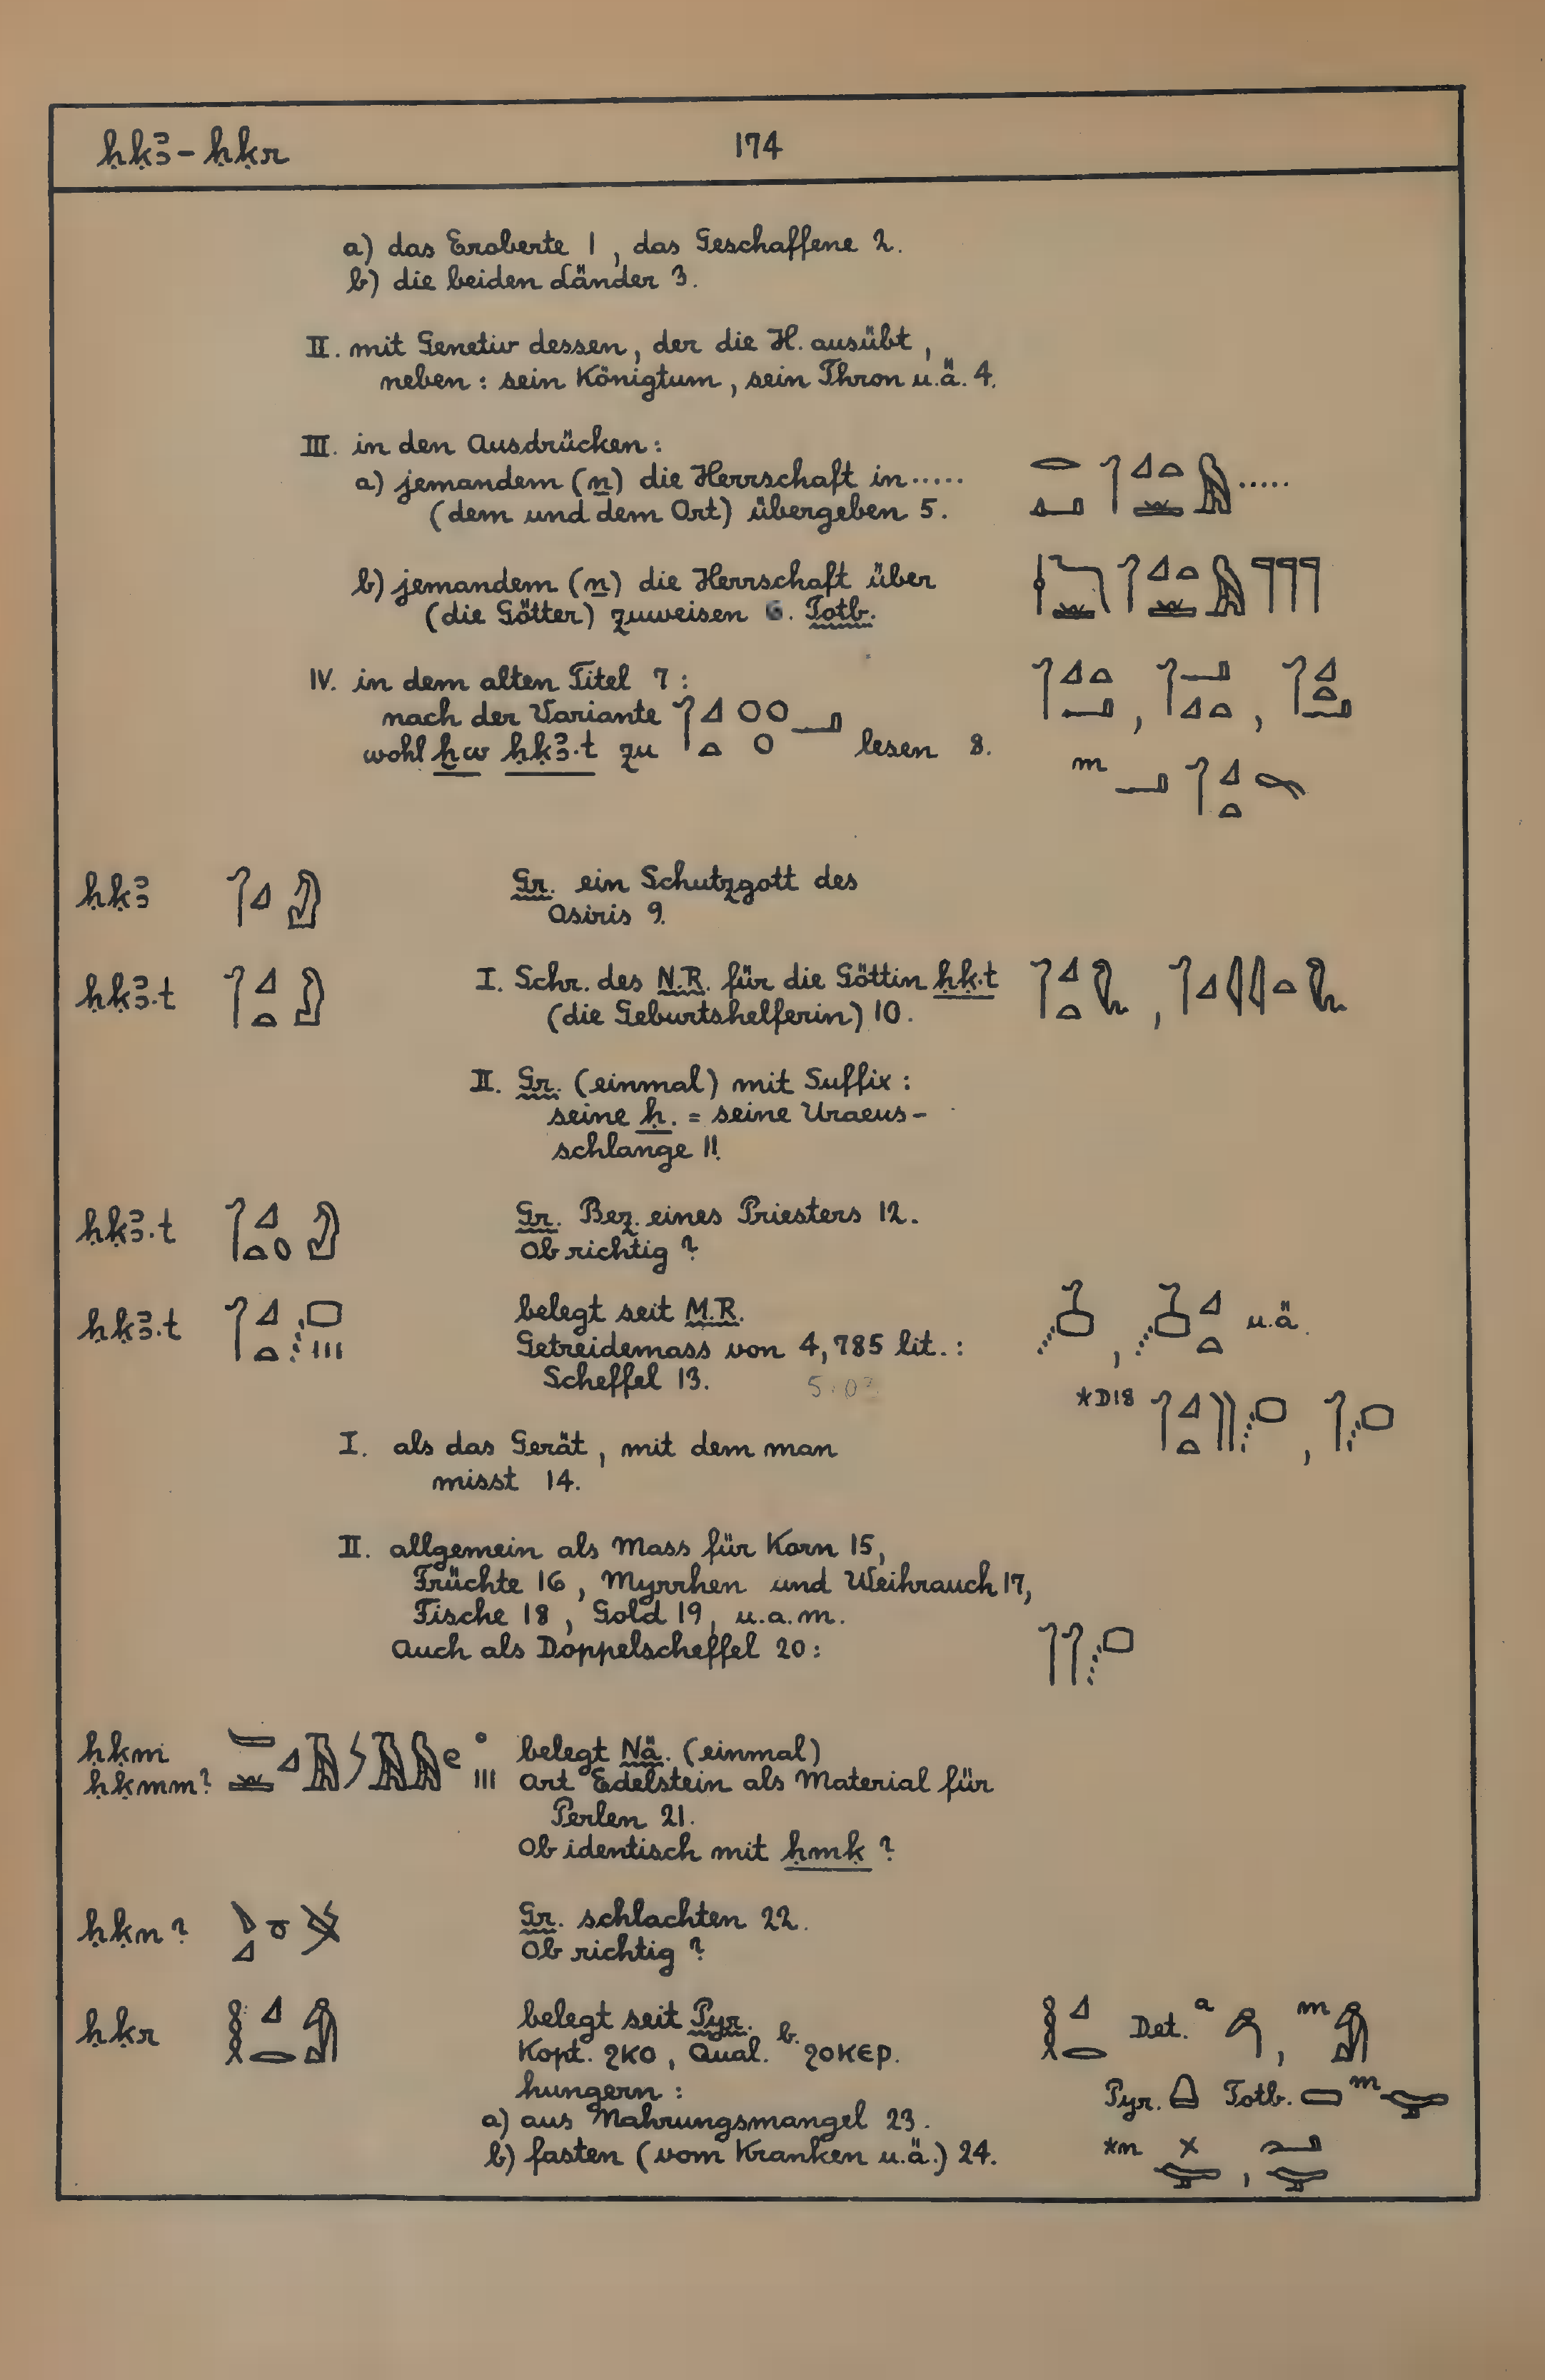 ḥḳꜣ - ḥḳr 174
a) das Eroberte 1, das Geschaffene 2.
b) die beiden Länder 3.
II. mit Genetiv dessen, der die H. ausübt,
neben: sein Königtum, sein Thron u.ä. 4.
III. in den Ausdrücken:
a) jemandem (n) die Herrschaft in .....
(dem und dem Ort) übergeben 5.
b) jemandem (n) die Herrschaft über
(die Götter) zuweisen 6. Totb.
IV. in dem alten Titel 7:
nach der Variante
wohl ḥw ḥḳꜣ.t zu lesen 8.
m
ḥḳꜣ Gr. ein Schutzgott des
Osiris 9.
ḥḳꜣ.t I. Schr. des N.R. für die Göttin ḥḳ.t
(die Geburtshelferin) 10.
II. Gr. (einmal) mit Suffix:
seine ḥ. = seine Uraeus-
schlange 11.
ḥḳꜣ.t Gr. Bez. eines Priesters 12.
Ob richtig?
ḥḳꜣ.t belegt seit M.R. u.ä.
Getreidemass von 4,785 lit.:
Scheffel 13.
*D18
I. als das Gerät, mit dem man
misst 14.
II. allgemein als Mass für Korn 15,
Früchte 16, Myrrhen und Weihrauch 17,
Fische 18, Gold 19, u.a.m.
Auch als Doppelscheffel 20:
ḥḳm belegt Nä. (einmal)
ḥḳmm? Art Edelstein als Material für
Perlen 21.
Ob identisch mit ḥmḳ?
ḥḳn? Gr. schlachten 22.
Ob richtig?
ḥḳr belegt seit Pyr. Det. a m
Kopt. ϩⲕⲟ, Qual. b. ϩⲟⲕⲉⲣ.
hungern: Pyr. Totb. m
a) aus Nahrungsmangel 23.
b) fasten (vom Kranken u.ä.) 24. *n